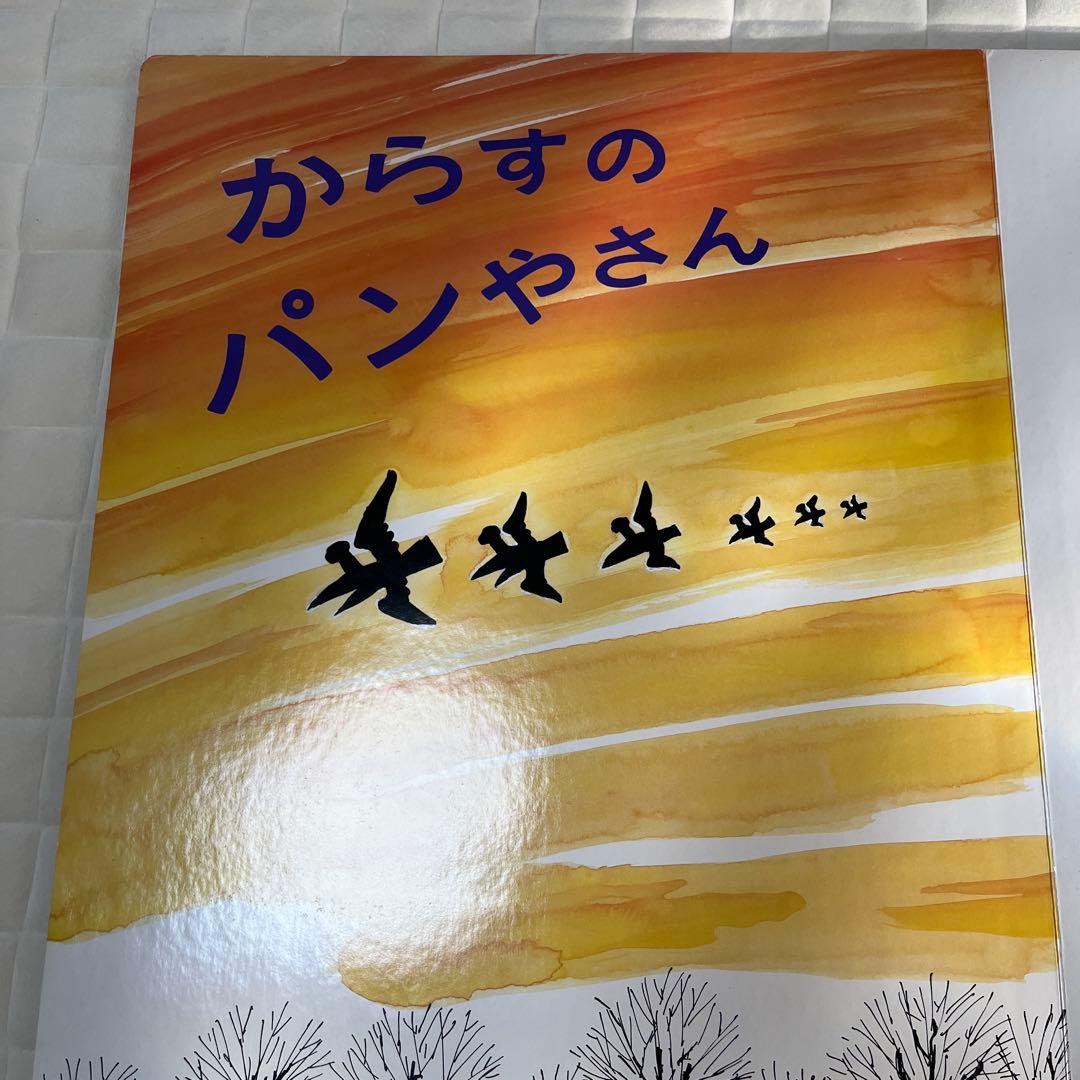 からすの
パンやさん